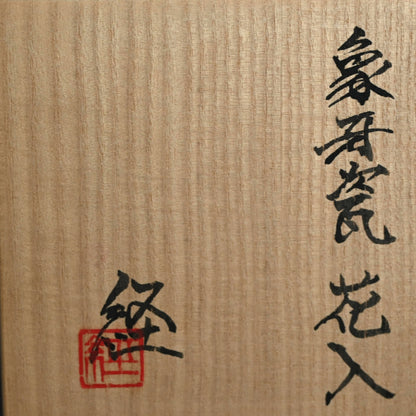 象牙瓷 花入
経